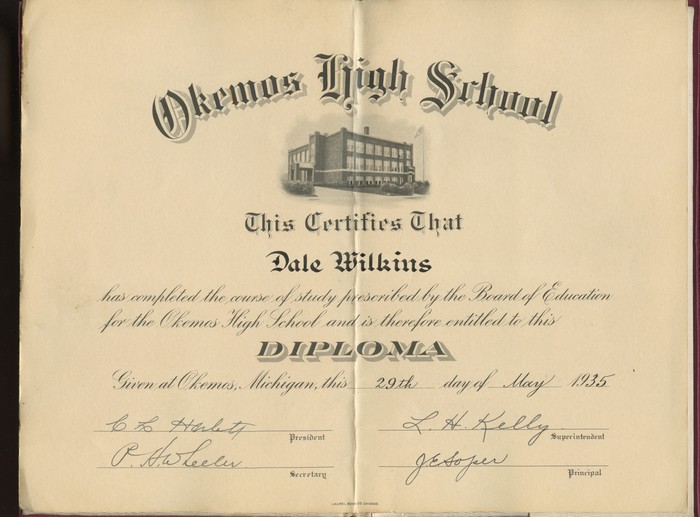 Okemos High School
This Certifies That
Dale Wilkins
has completed the course of study prescribed by the Board of Education
for the Okemos High School and is therefore entitled to this
DIPLOMA
Given at Okemos, Michigan, this 29th day of May 1935
President
L. H. Kelly
Superintendent
P. H. Wheeler
Secretary
J E Soper
Principal